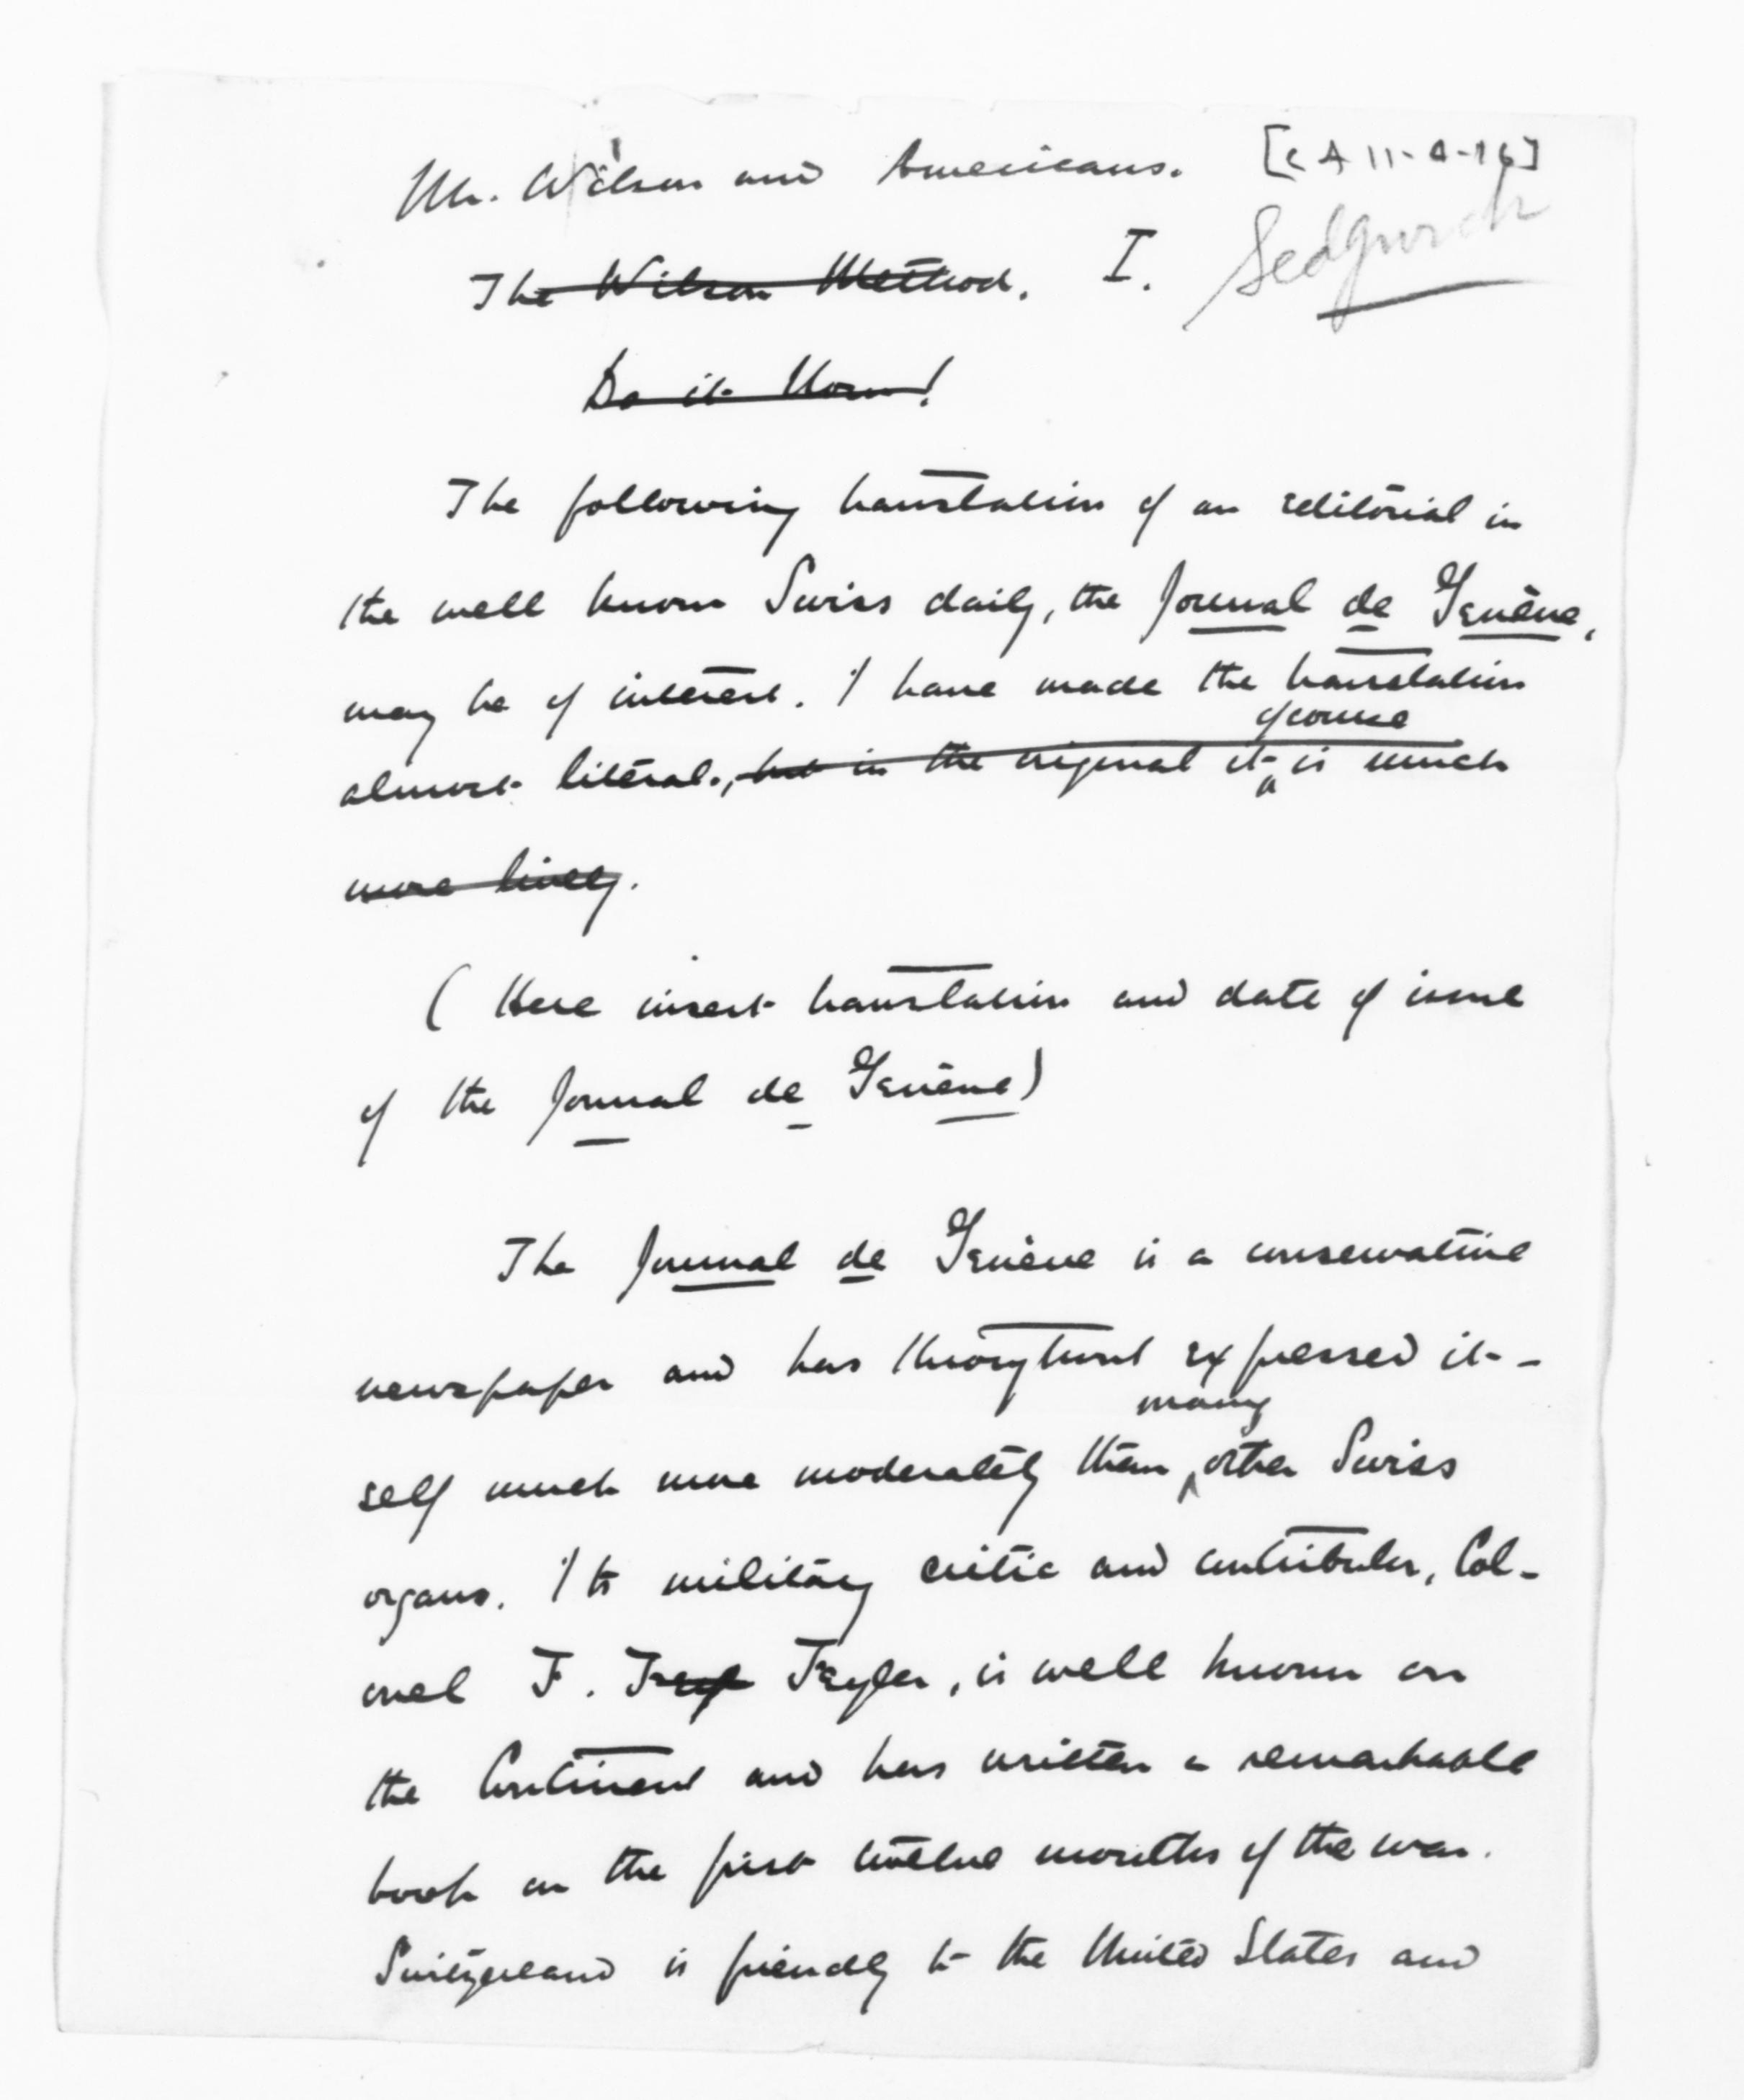 Mr. Wilson and Americans. [CA 11-4-16]
The Wilson Method. I. Sedgwick
Do it Now!
The following translation of an editorial in
the well known Swiss daily, the Journal de Genève,
may be of interest. I have made the translation
of course
almost literal., but in the original it is much
more lively.
( Here insert translation and date of issue
of the Journal de Genève)
The Journal de Genève is a conservative
newspaper and has throughout expressed it-
many
self much more moderately than other Swiss
organs. Its military critic and contributor, Col-
onel F. Feyler, is well known on
the Continent and has written a remarkable
book on the first twelve months of the war.
Switzerland is friendly to the United States and